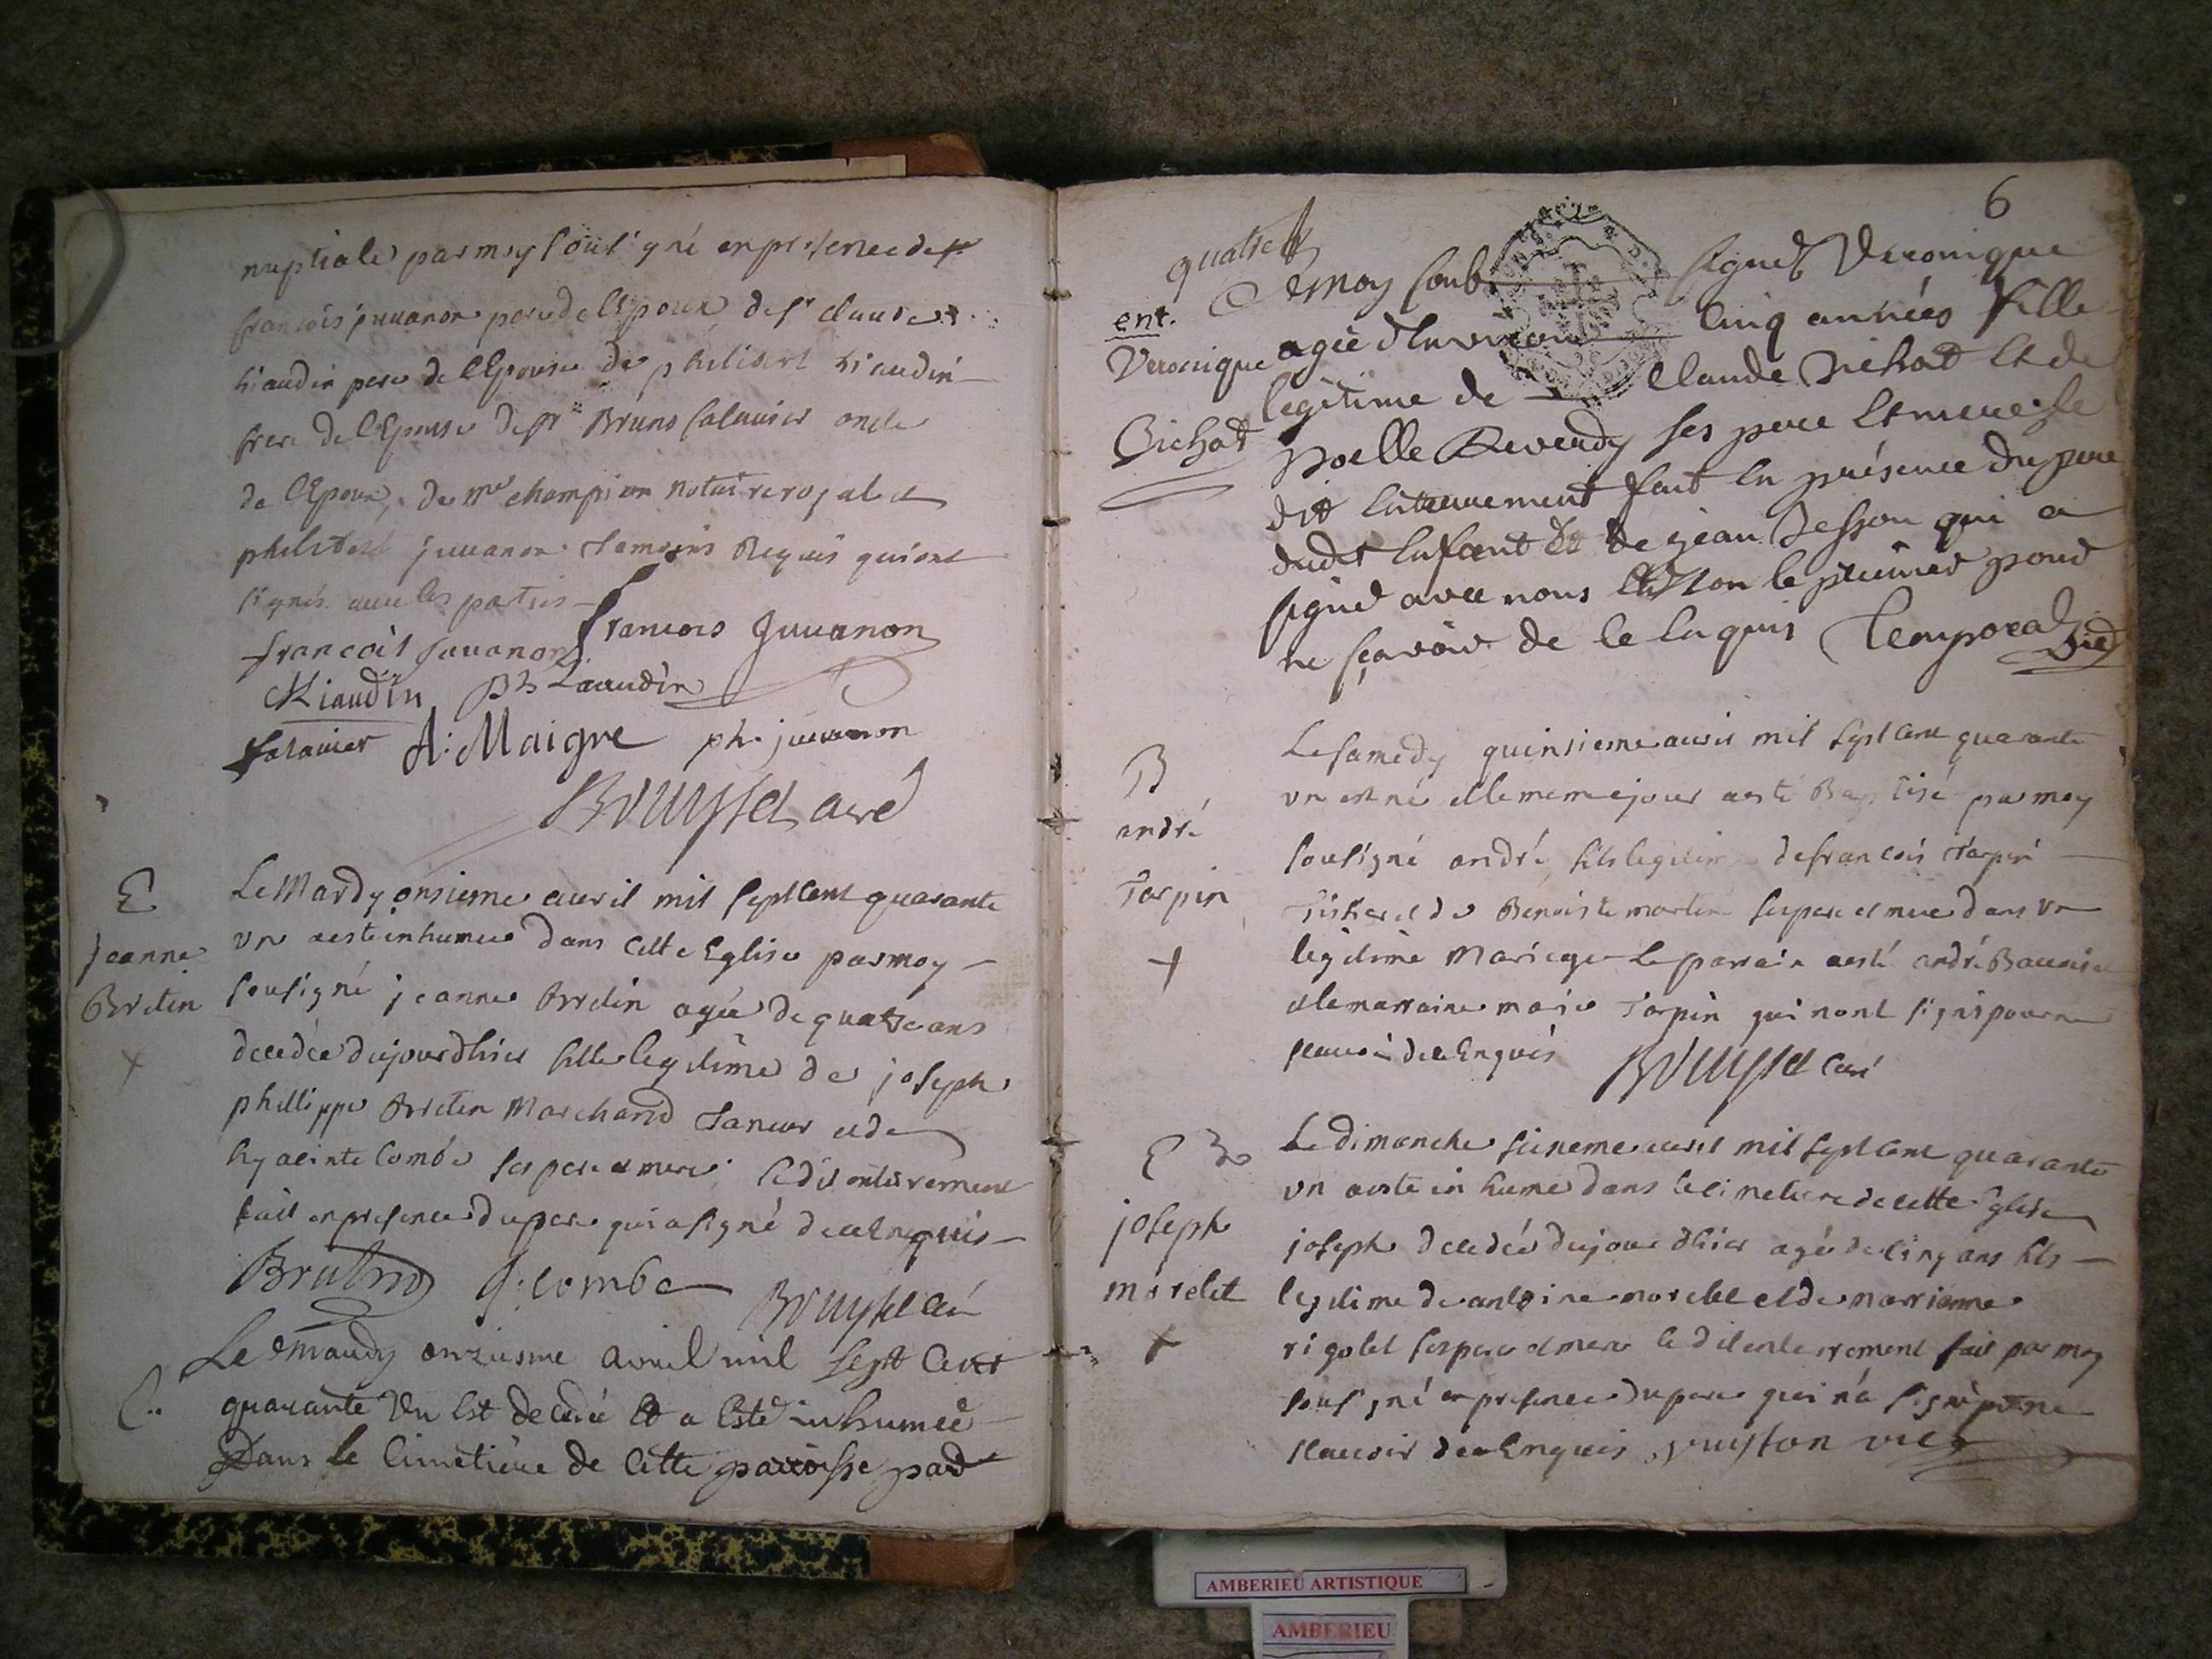 nuptiale par moy sousigné en presence de sr
francois juuanon pere de lEpoux, de sr claude
Kiaudin pere de lEpouse de philibert Kiaudin
frere de lEpouse de sr Bruno Salauier oncle
de lEpoux, de me champion notaire royal et
philibert juuanon Temoins Requis qui ont
signés auec les parties
francois Juuanon francois Juuanon
Kiaudin ph Kiaudin
Salauier A: Maigre ph. juuanon
Bruysset curé
E
Jeanne
Bretin
Le Mardy onsieme auril mil sept cent quarante
un a esté inhumée dans cette Eglise par moy
sousigné jeanne Bretin agée de quatre ans
decedée du jour dhier fille legitime de joseph
phillippe Bretin Marchand Taneur et de
hyacinte Combe ses pere et mere. le dit enterrement
fait en presence du pere qui a signé de ce Enquis
Bretin J: combe Bruysset curé
E..
Le mardy onzieme avril mil sept cent
quarante Un Est decedée Et a Esté inhumée
Dans le Cimetiere de Cette paroisse par
6
quatre
ent.
Veronique
Bichat
Moy soubsigné Veronique
agée d'Environ Cinq années fille
legitime de Claude Bichat Et de
Noelle Reverdy ses pere Et mere le
dit Enterrement fait En présence du pere
dudt Enfant Et de jean Tesson qui a
signé avec nous Et Non le premier pour
ne sçavoir de ce Enquis Temporal vic
B
andré
Tarpin
Le samedy quinsieme auril mil sept cent quarante
un est né et le meme jour a esté Baptisé par moy
sousigné andré fils legitime de francois Tarpin
Tissier et de Benoiste martin ses pere et mere dans un
legitime Mariage Le parrain a esté andré
et la marraine marie Tarpin qui n'ont signé pour ne
scauoir de ce Enquis Bruysset curé
E
joseph
morelet
Le dimanche seisieme auril mil sept cent quarante
un a esté inhumé dans le cimetiere de cette Eglise
joseph decedée du jour dhier agé de cinq ans fils
legitime de antoine morelet et de marrianne
rigolet ses pere et mere le dit enterrement fait par moy
sousigné en presence du pere qui n'a signé pour ne
scauoir de ce Enquis vic
AMBERIEU ARTISTIQUE
AMBERIEU